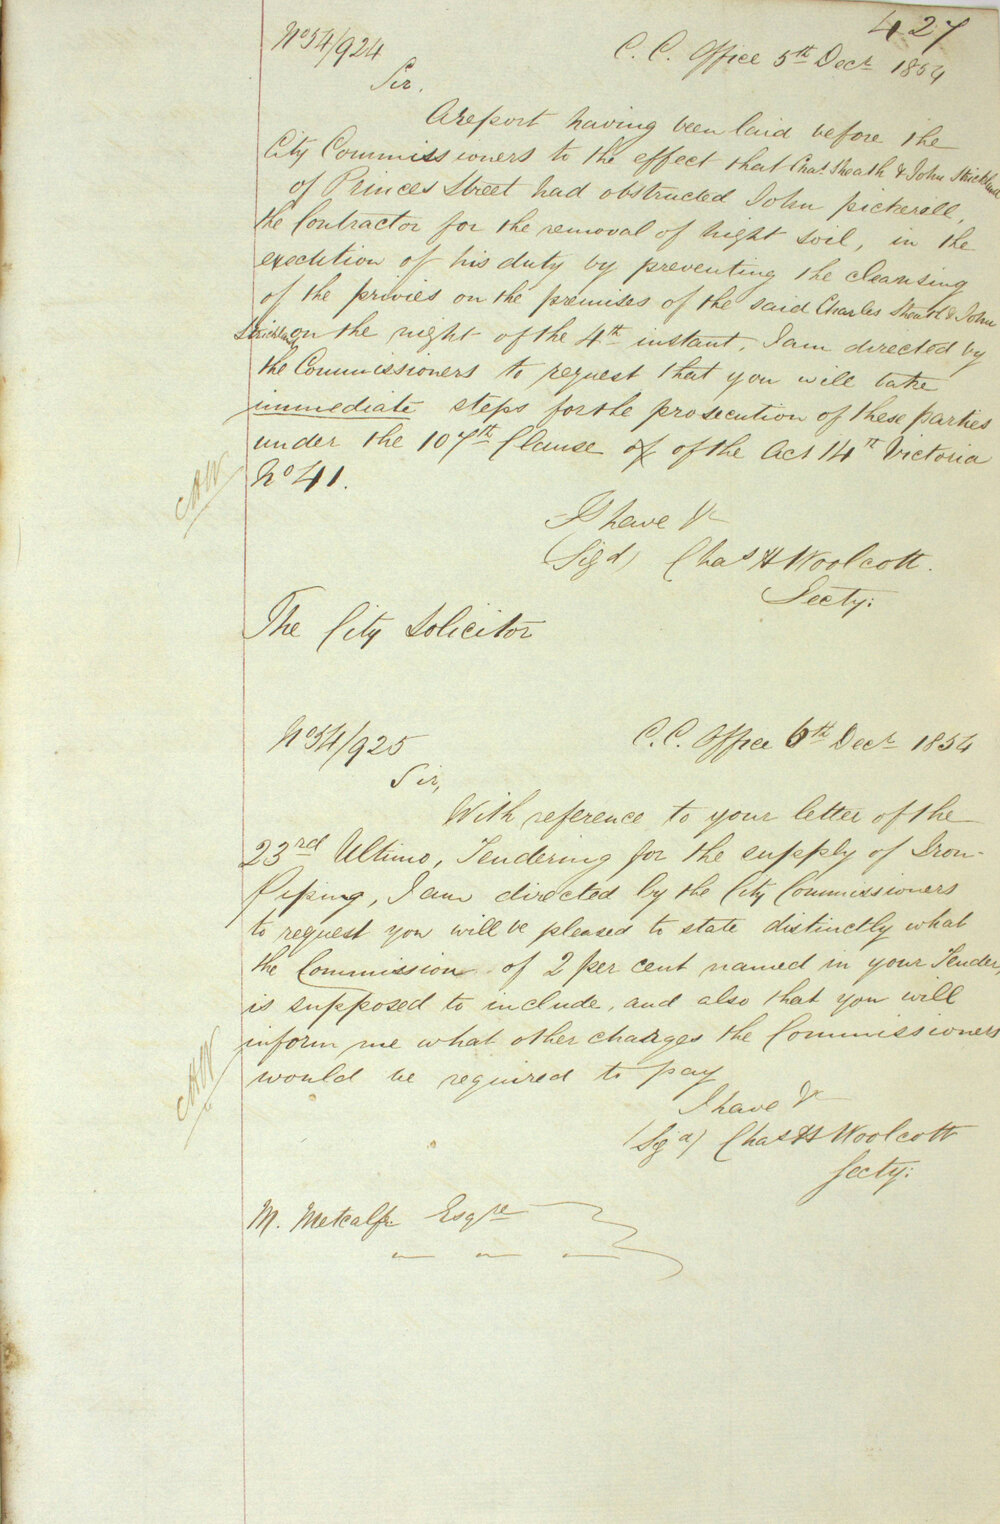 427
No 54/924
C. C. Office 5th Decr 1854
Sir.
A report having been laid before the
City Commissioners to the effect that Chas. Sheath & John Strickland
of Princes Street had obstructed John pickerell,
the Contractor for the removal of night soil, in the
execution of his duty by preventing the cleansing
of the privies on the premises of the said Charles Sheath & John
Strickland on the night of the 4th instant, I am directed by
the Commissioners to request that you will take
immediate steps for the prosecution of these parties
under the 107th Clause of of the Act 14th Victoria
No 41.
I have &c
(Sigd) Chas H Woolcott.
Secty:
The City Solicitor
No 54/925
C. C. Office 6th Decr 1854
Sir,
With reference to your letter of the
23rd Ultimo, Tendering for the supply of Iron-
Piping, I am directed by the City Commissioners
to request you will be pleased to state distinctly what
the Commission of 2 per cent named in your Tender,
is supposed to include, and also that you will
inform me what other charges the Commissioners
would be required to pay
I have &c
(Sigd) Chas H Woolcott
Secty:
M. Metcalfe Esqre